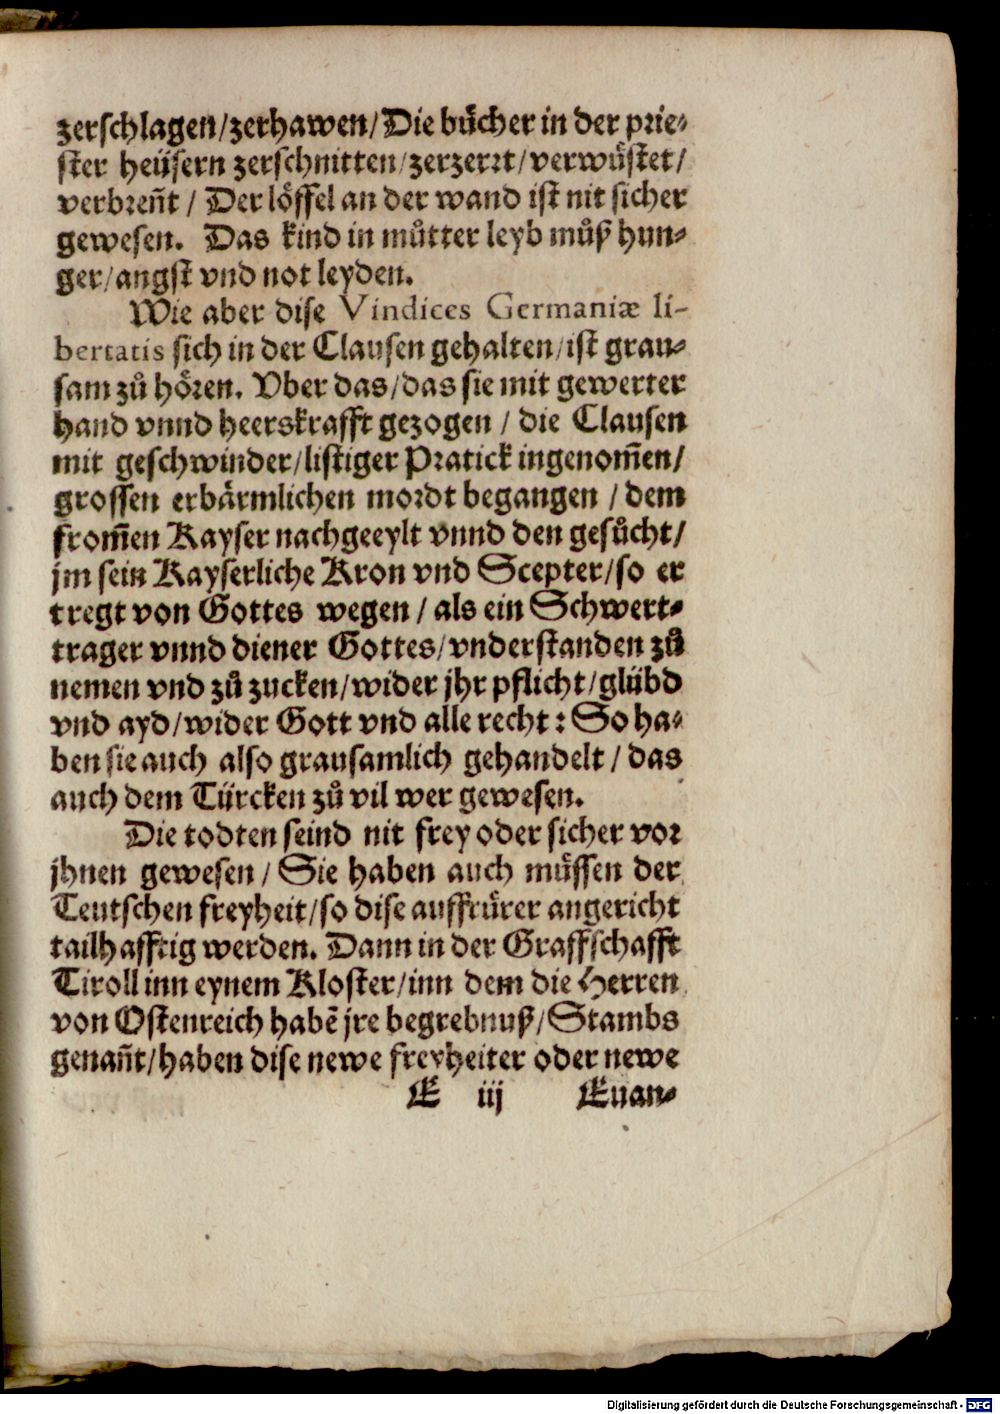 zerschlagen/zerhawen/Die bücher in der prie⸗
ster heüsern zerschnitten/zerzerrt/verwüstet/
verbreñt / Der löffel an der wand ist nit sicher
gewesen. Das kind in můtter leyb můß hun⸗
ger/angst vnd not leyden.
Wie aber dise Vindices Germaniæ li-
bertatis sich in der Clausen gehalten/ist grau⸗
sam zů hören. Vber das/das sie mit gewerter
hand vnnd heerskrafft gezogen / die Clausen
mit geschwinder/listiger Pratick ingenom̃en/
grossen erbärmlichen mordt begangen / dem
from̃en Kayser nachgeeylt vnnd den gesůcht/
jm sein Kayserliche Kron vnd Scepter/so er
tregt von Gottes wegen / als ein Schwert⸗
trager vnnd diener Gottes/vnderstanden zů
nemen vnd zů zucken/wider jhr pflicht/glübd
vnd ayd/wider Gott vnd alle recht: So ha⸗
ben sie auch also grausamlich gehandelt / das
auch dem Türcken zů vil wer gewesen.
Die todten seind nit frey oder sicher vor
jhnen gewesen / Sie haben auch müssen der
Teutschen freyheit/so dise auffrürer angericht
tailhafftig werden. Dann in der Graffschafft
Tiroll inn eynem Kloster/inn dem die Herren
von Ostenreich habẽ jre begrebnuß/Stambs
genañt/haben dise newe freyheiter oder newe
E iij Euan⸗
Digitalisierung gefördert durch die Deutsche Forschungsgemeinschaft - DFG